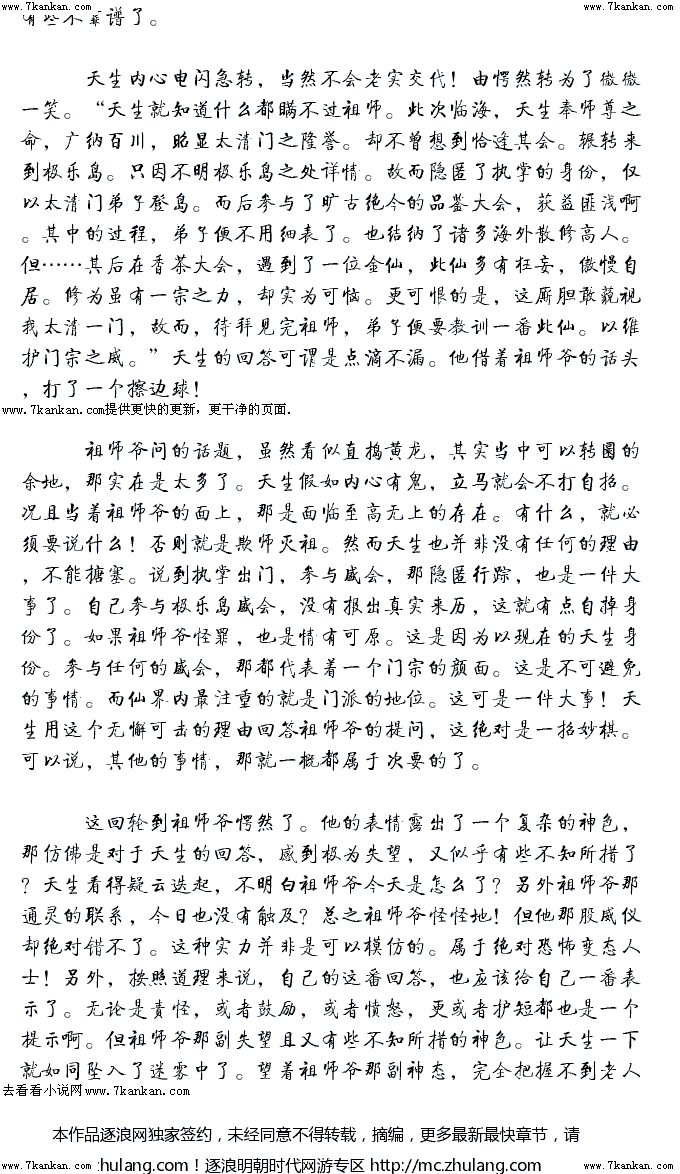 www.7kankan.com www.7kankan.com
有些不靠谱了。
天生内心电闪急转，当然不会老实交代！由愕然转为了微微
一笑。“天生就知道什么都瞒不过祖师。此次临海，天生奉师尊之
命，广纳百川，昭显太清门之隆誉。却不曾想到恰逢其会。辗转来
到极乐岛。只因不明极乐岛之处详情。故而隐匿了执掌的身份，仅
以太清门弟子登岛。而后参与了旷古绝今的品鉴大会，获益匪浅啊
。其中的过程，弟子便不用细表了。也结纳了诸多海外散修高人。
但……其后在香茶大会，遇到了一位金仙，此仙多有狂妄，傲慢自
居。修为虽有一宗之力，却实为可恼。更可恨的是，这厮胆敢藐视
我太清一门，故而，待拜见完祖师，弟子便要教训一番此仙。以维
护门宗之威。”天生的回答可谓是点滴不漏。他借着祖师爷的话头
，打了一个擦边球！
www.7kankan.com提供更快的更新，更干净的页面.
祖师爷问的话题，虽然看似直捣黄龙，其实当中可以转圜的
余地，那实在是太多了。天生假如内心有鬼，立马就会不打自招。
况且当着祖师爷的面上，那是面临至高无上的存在。有什么，就必
须要说什么！否则就是欺师灭祖。然而天生也并非没有任何的理由
，不能搪塞。说到执掌出门，参与盛会，那隐匿行踪，也是一件大
事了。自己参与极乐岛盛会，没有报出真实来历，这就有点自掉身
份了。如果祖师爷怪罪，也是情有可原。这是因为以现在的天生身
份。参与任何的盛会，那都代表着一个门宗的颜面。这是不可避免
的事情。而仙界内最注重的就是门派的地位。这可是一件大事！天
生用这个无懈可击的理由回答祖师爷的提问，这绝对是一招妙棋。
可以说，其他的事情，那就一概都属于次要的了。
这回轮到祖师爷愕然了。他的表情露出了一个复杂的神色，
那仿佛是对于天生的回答，感到极为失望，又似乎有些不知所措了
？天生看得疑云迭起，不明白祖师爷今天是怎么了？另外祖师爷那
通灵的联系，今日也没有触及？总之祖师爷怪怪地！但他那股威仪
却绝对错不了。这种实力并非是可以模仿的。属于绝对恐怖变态人
士！另外，按照道理来说，自己的这番回答，也应该给自己一番表
示了。无论是责怪，或者鼓励，或者愤怒，更或者护短都也是一个
提示啊。但祖师爷那副失望且又有些不知所措的神色。让天生一下
就如同坠入了迷雾中了。望着祖师爷那副神态，完全把握不到老人
去看看小说网www.7kankan.com
本作品逐浪网独家签约，未经同意不得转载，摘编，更多最新最快章节，请
www.7kankan.com zhulang.com！逐浪明朝时代网游专区http://mc.zhulang.com www.7kankan.com